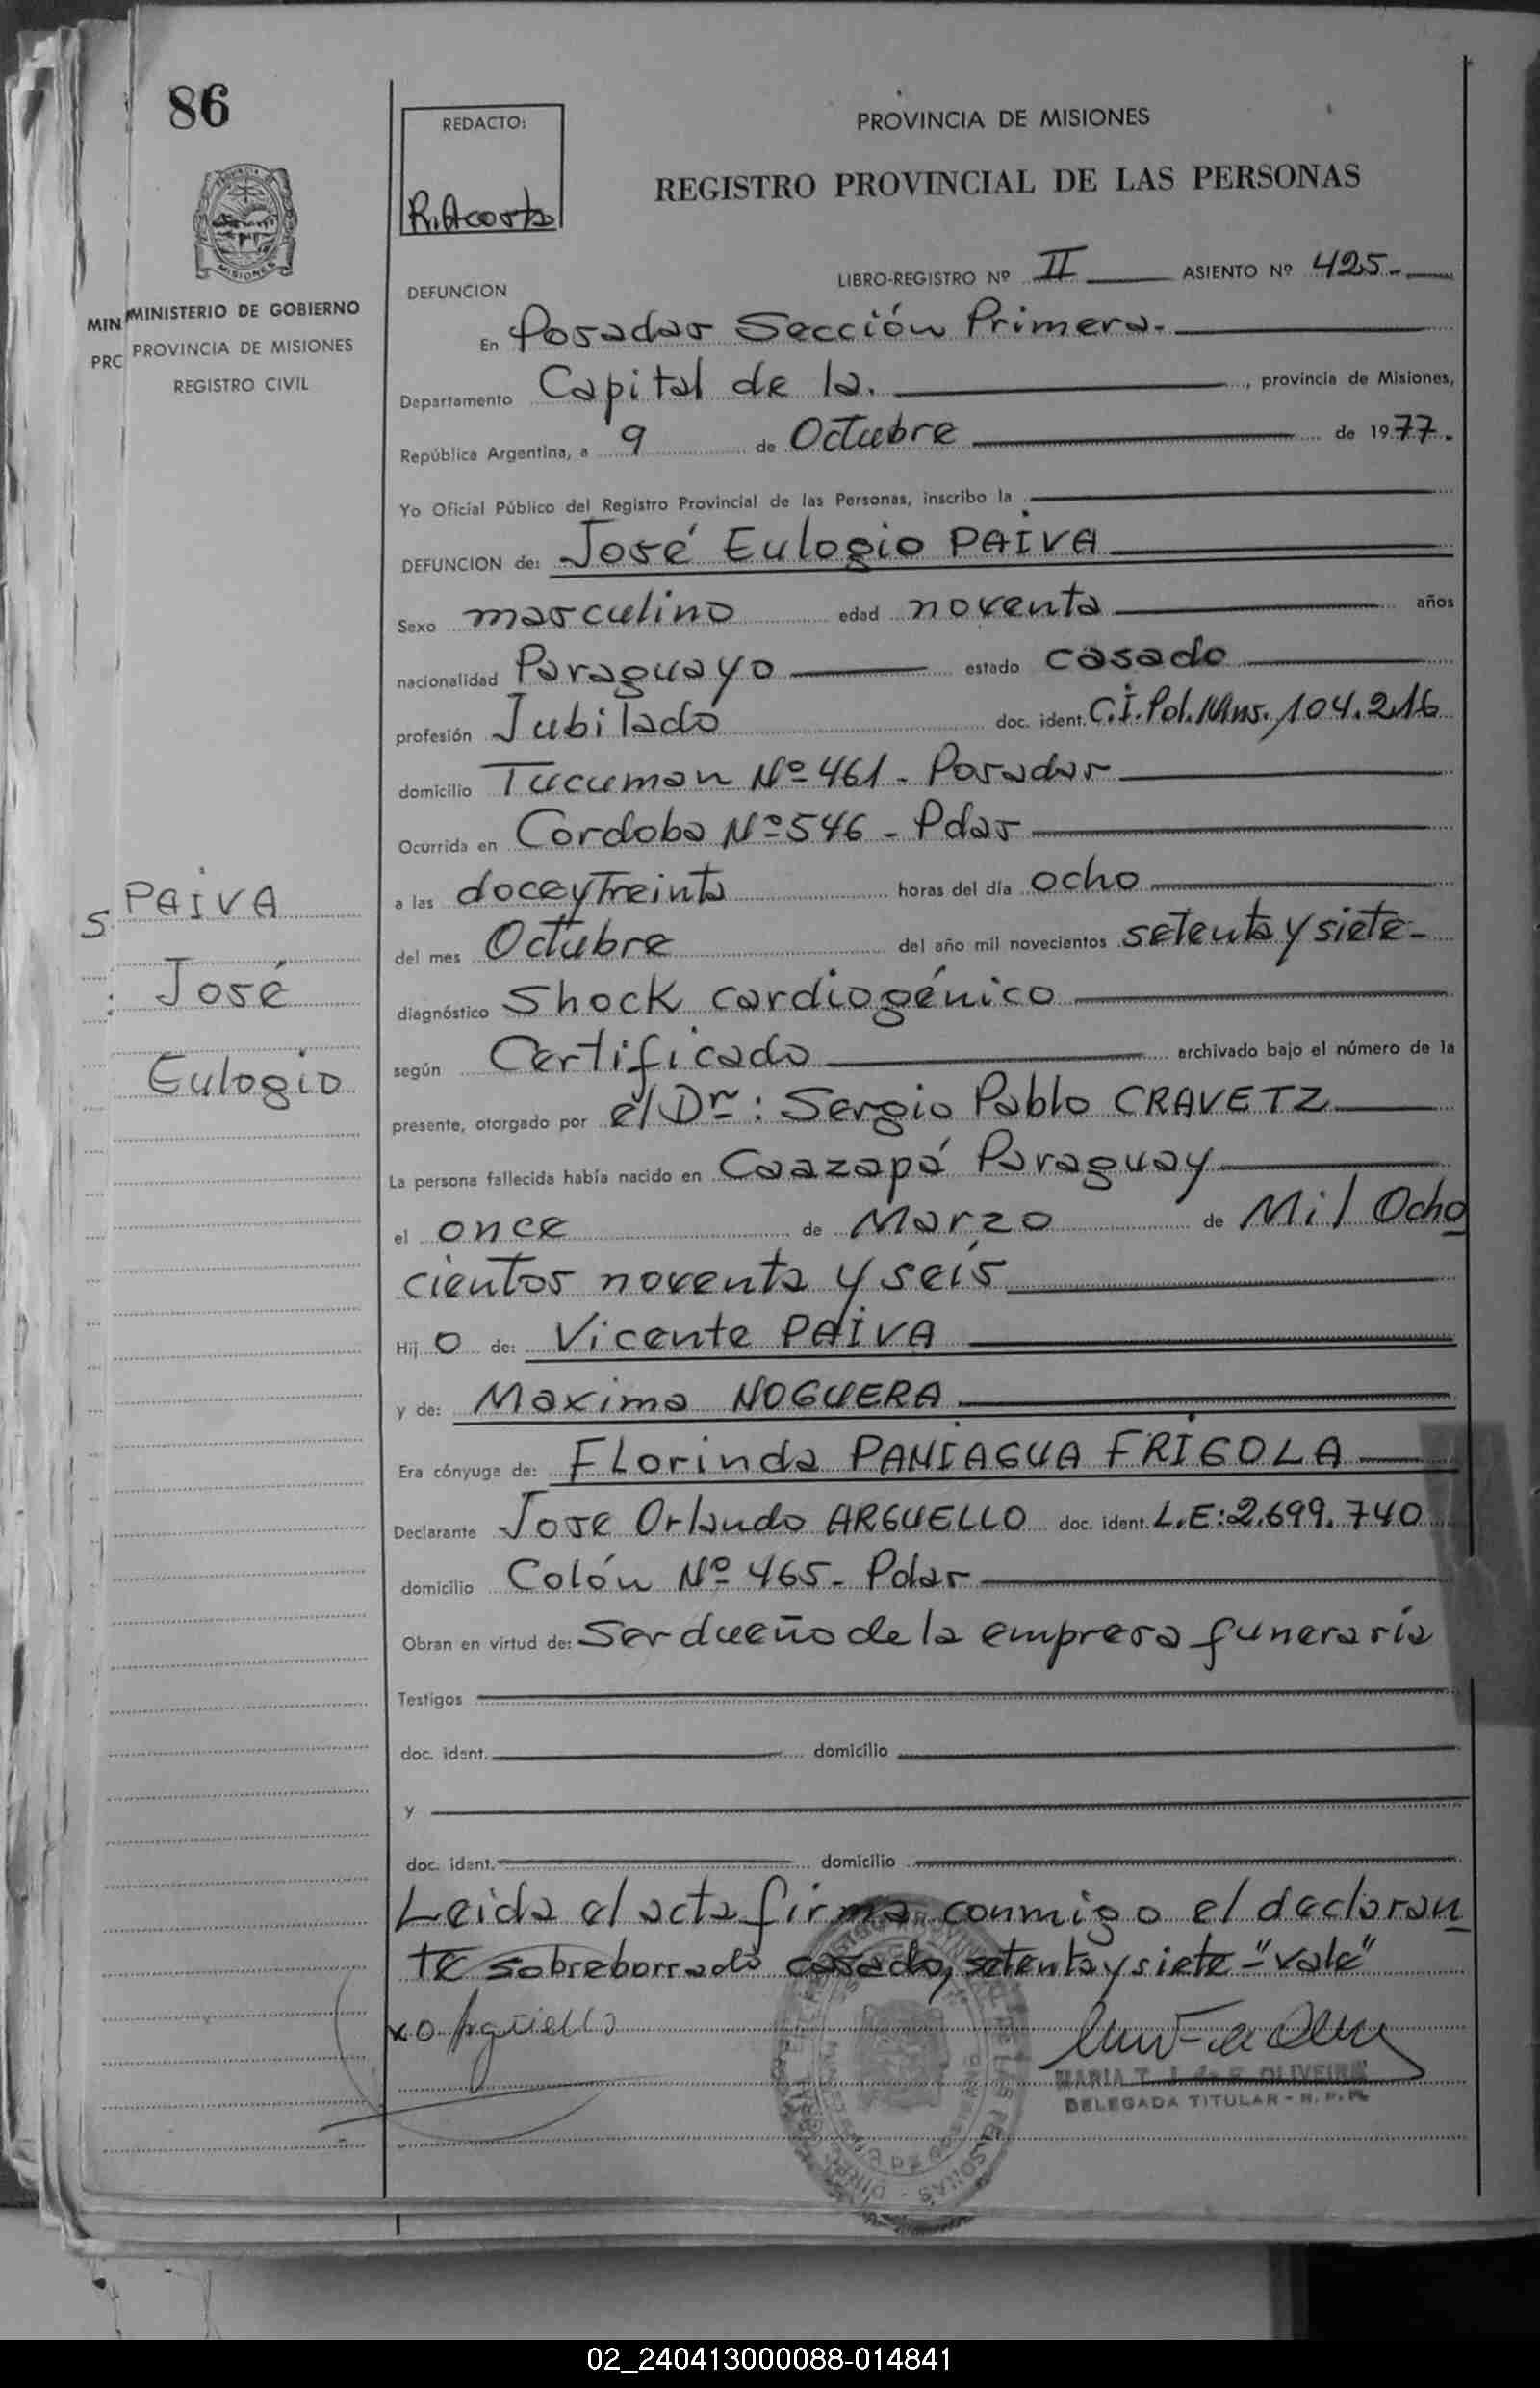 86
REDACTO:
R. Acosta
PROVINCIA DE MISIONES
REGISTRO PROVINCIAL DE LAS PERSONAS
MISIONES
MIN MINISTERIO DE GOBIERNO
PRC PROVINCIA DE MISIONES
REGISTRO CIVIL
DEFUNCION
LIBRO-REGISTRO Nº II ASIENTO Nº 425.-
En Posadas Sección Primera.-
Departamento Capital de la. , provincia de Misiones,
República Argentina, a 9 de Octubre de 1977.
Yo Oficial Público del Registro Provincial de las Personas, inscribo la
DEFUNCION de: José Eulogio PAIVA
Sexo masculino edad noventa años
nacionalidad Paraguayo estado casado
profesión Jubilado doc. ident. C.I.Pol.Mns. 104.216
domicilio Tucuman Nº 461 - Posadas
Ocurrida en Cordoba Nº 546 - Pdas
a las doce y treinta horas del día ocho
del mes Octubre del año mil novecientos setenta y siete-
diagnóstico Shock cardiogénico
según Certificado archivado bajo el número de la
presente, otorgado por el Dr: Sergio Pablo CRAVETZ
La persona fallecida había nacido en Caazapá Paraguay
el once de Marzo de Mil Ocho
cientos noventa y seis
Hij o de: Vicente PAIVA
y de: Maxima NOGUERA
Era cónyuge de: Florinda PANIAGUA FRIGOLA
Declarante Jose Orlando ARGUELLO doc. ident. L.E: 2.699.740
domicilio Colón Nº 465 - Pdas
Obran en virtud de: Ser dueño de la empresa funeraria
Testigos
doc. ident. domicilio
y
doc. ident. domicilio
Leida el acta firma conmigo el declaran
te sobreborrado casado, setenta y siete - "vale"
S. PAIVA
José
Eulogio
O Argüello
MARIA T. J. de F. OLIVEIRA
DELEGADA TITULAR - R. P. P.
02_240413000088-014841